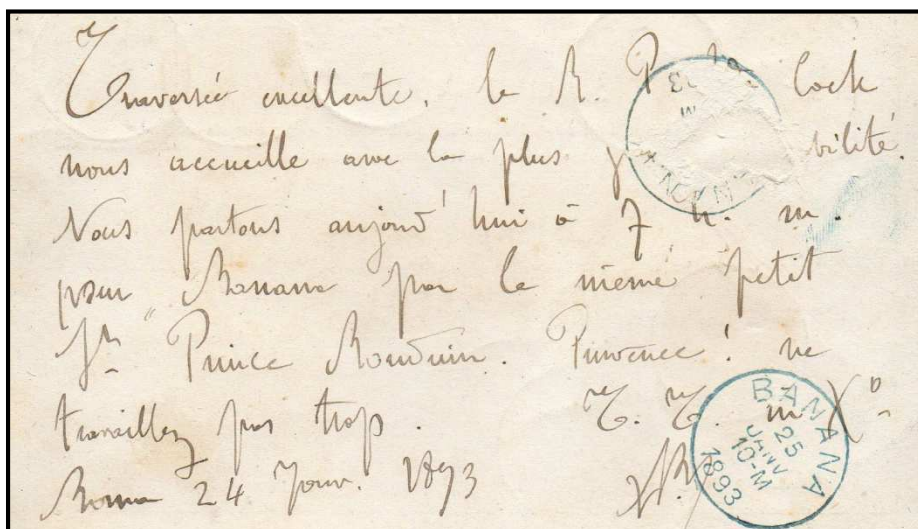 Traversée excellente. le R. P. cock
nous accueille avec la plus bilité.
Nous partons aujourd'hui à 7 h. m.
pour Banana par le même petit
Str "Prince Baudouin. Prudence! ne
travaillez pas trop. T. T. in Xº
Boma 24 Janv. 1893
BANANA
25
JANV
10-M
1893